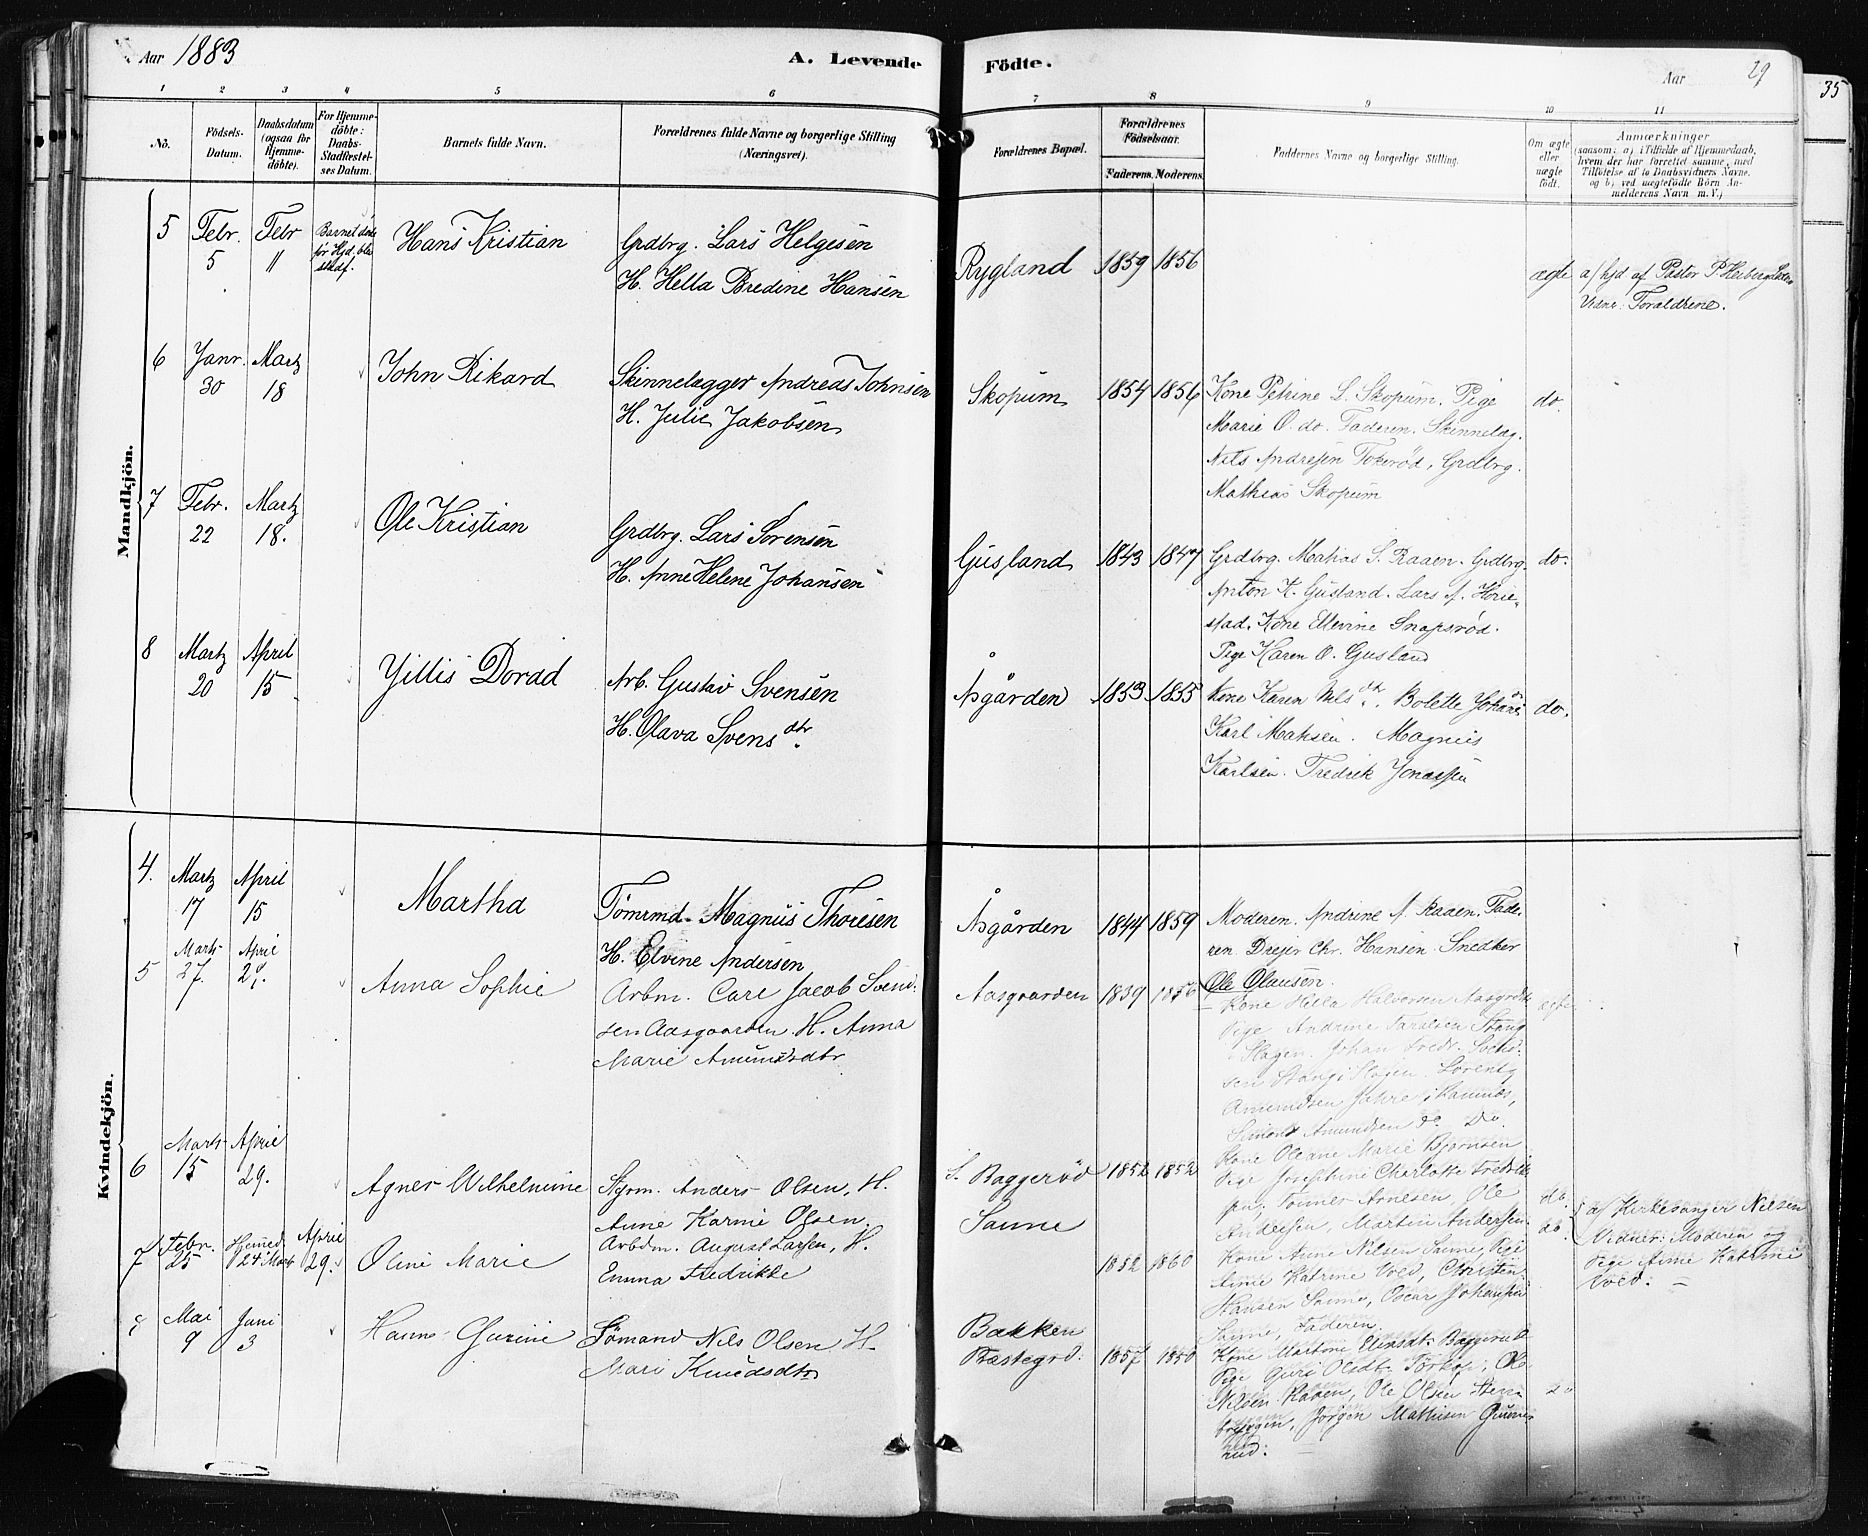 Aar 1883
A. Levende Födte.
Aar 29
35
1 2 3 4 5 6 7 8 9 10 11
No.
Födsels-
Datum.
Daabsdatum
(ogsaa for
Hjemme-
döbte).
For Hjemme-
döbte:
Daabs-
Stadfæstel-
ses Datum.
Barnets fulde Navn.
Forældrenes fulde Navne og borgerlige Stilling
(Næringsvei).
Forældrenes Bopæl.
Forældrenes
Födselsaar.
Faderens. Moderens.
Faddernes Navne og borgerlige Stilling.
Om ægte
eller
uægte
födt.
Anmærkninger
(saasom: a) i Tilfælde af Hjemmedaab,
hvem der har forrettet samme, med
Tilföielse af to Daabsvidners Navne,
og b) ved uægtefödte Börn An-
melderens Navn m. V.)
Mandkjön.
5 Febr. 5 Febr 11
Barnet døde
før Hjd. blev
stadf.
Hans Kristian
Grdbrg. Lars Helgesen
H. Hella Bredine Hansen
Rygland 1859 1856
ægte
a/ hjd af Pastor P. Heiberg
Vidner: Forældrene.
6 Janr. 30 Martz 18
John Rikard
Skinnelægger Andreas Johnsen
H. Julie Jakobsen
Skopum 1854 1856
Kone Petrine L. Skopum. Pige
Marie O. do. Faderen. Skinnelæg.
Nils Andresen Tokerød, Grdbrg.
Mathias Skopum
do.
7 Febr. 22 Martz 18.
Ole Kristian
Grdbrg. Lars Sørensen
H. Anne Helene Johansen
Gusland 1843 1847
Grdbrg. Matias S. Raaen. Grdbrg.
Anton K. Gusland. Lars A. Horte-
stad. Kone Ellevine Snapsrød.
Pige Karen O. Gusland
do.
8 Martz 20 April 15
Yillis Dorad
Arb. Gustav Svensen
H. Olava Svensdtr.
Åsgården 1853 1855
Kone Karen Nilsdtr. Bolette Johans
Karl Mahsen. Magnus
Karlsen. Fredrik Jonassen
do.
Kvindekjön.
4. Martz 17 April 15
Martha
Tømrmd. Magnus Thoresen
H. Elvine Andersen
Åsgården 1844 1859
Moderen. Andrine A. Raaen. Fade-
ren. Drejer Chr. Hansen. Snedker
Ole Olausen.
5 Marts 27. April 29.
Anna Sophie
Arbm. Carl Jacob Svend-
sen Aasgaarden. H. Anna
Marie Amundsdtr
Aasgaarden 1839 1856
Kone Hella Halvorsen Aasgrd
Pige Andrine Taralsen Stang
i Slagen. Johan Fredr. Sechs-
sen Stang i Slagen. Lorentz
Amundsen Jahre i Ramnæs,
Simon Amundsen do. Do.
ægte
6 Marts 15 April 29.
Agnes Wilhelmine
Styrm. Anders Olsen, H.
Anne Karine Olsen.
S. Baggerød 1852 1852
Kone Oleane Marie Bjørnsen
Pige Josephine Charlotte Fredrik
Tønnes Arnesen, Ole
Andersen, Martin Andersen.
do.
7 Febr. 25 Hjemmed. 24 Marts April 29.
Oline Marie
Arbdm. August Larsen, H.
Emma Fredrikke
Sanne
1852 1860
Kone Anne Nilsen Sanne, Pige
Anne Katrine Vold, Christen
Hansen Sanne, Oscar Johansen
Sanne, Faderen.
do.
a/ Kirkesanger Nilsen
Vidner: Moderen og
Pige Anne Katrine
Vold. –
8 Mai 9 Juni 3
Hanne Gurine
Sømand Nils Olsen H.
Mari Knudsdtr
Bakken
Præstegrd. 1857 1850
Kone Martine Baggerød
Pige Guri Olsdtr. Torkop, Ole
Nilsen Raaen, Ole Olsen
Jørgen Mathisen
rud.
do